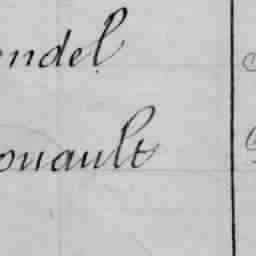 endel
ouault